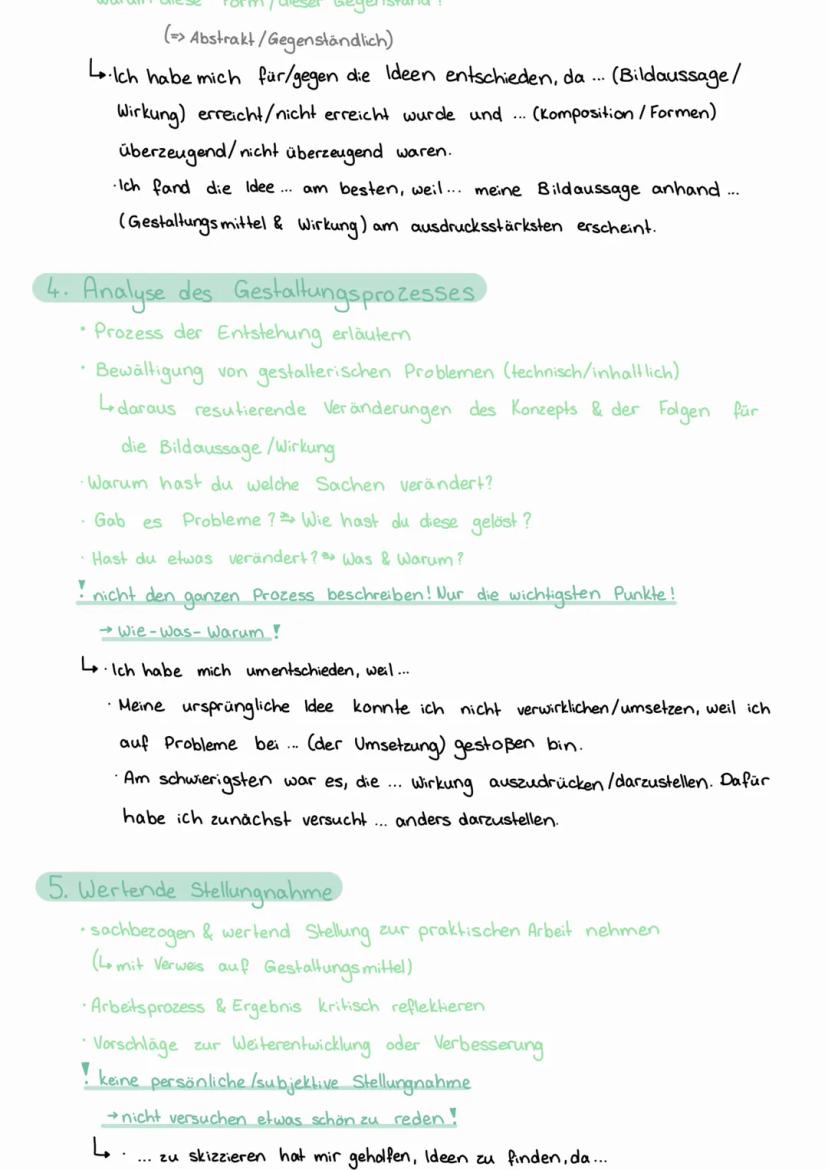 warum diese Form/dieser Gegenstand?
(=> Abstrakt/Gegenständlich)
↳·Ich habe mich für/gegen die Ideen entschieden, da ... (Bildaussage/
Wirkung) erreicht/nicht erreicht wurde und ... (Komposition/Formen)
überzeugend/nicht überzeugend waren.
·Ich fand die Idee ... am besten, weil... meine Bildaussage anhand ...
(Gestaltungsmittel & Wirkung) am ausdrucksstärksten erscheint.
4. Analyse des Gestaltungsprozesses
• Prozess der Entstehung erläutern
• Bewältigung von gestalterischen Problemen (technisch/inhaltlich)
↳ daraus resutierende Veränderungen des Konzepts & der Folgen für
die Bildaussage/Wirkung
·Warum hast du welche Sachen verändert?
· Gab es Probleme? => Wie hast du diese gelöst?
· Hast du etwas verändert? => Was & Warum?
! nicht den ganzen Prozess beschreiben! Nur die wichtigsten Punkte!
→ Wie-Was-Warum!
↳ · Ich habe mich umentschieden, weil...
· Meine ursprüngliche Idee konnte ich nicht verwirklichen/umsetzen, weil ich
auf Probleme bei ... (der Umsetzung) gestoßen bin.
· Am schwierigsten war es, die ... Wirkung auszudrücken/darzustellen. Dafür
habe ich zunächst versucht ... anders darzustellen.
5. Wertende Stellungnahme
• sachbezogen & wertend Stellung zur praktischen Arbeit nehmen
(↳ mit Verweis auf Gestaltungsmittel)
· Arbeitsprozess & Ergebnis kritisch reflektieren
· Vorschläge zur Weiterentwicklung oder Verbesserung
! keine persönliche/subjektive Stellungnahme
→ nicht versuchen etwas schön zu reden!
↳ · ... zu skizzieren hat mir geholfen, Ideen zu finden, da...